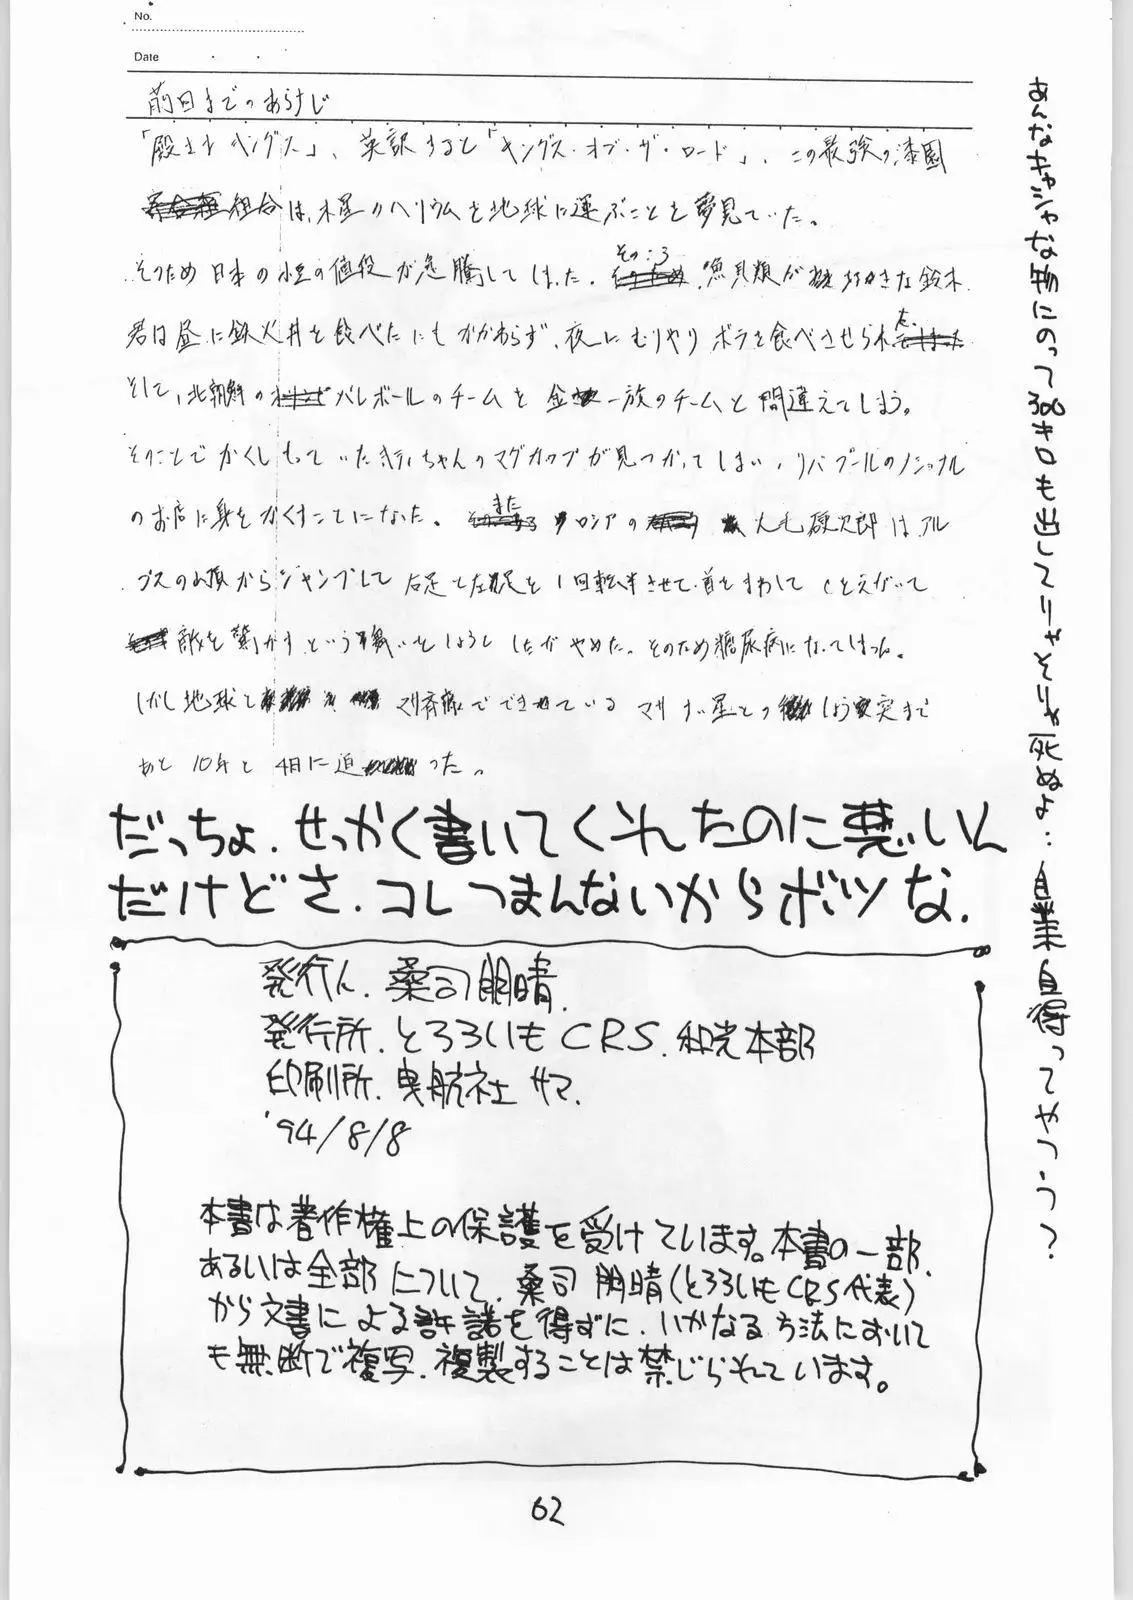 No.
Date
前回までのあらすじ
「殿さまキングス」、英訳すると「キングス・オブ・ザ・ロード」、この最強の漆園
組合は、木星のヘリウムを地球に運ぶことを夢見ていた。
そのため日本の小豆の値段が急騰してしまった。そのころ、魚貝類が好きな鈴木
君は昼に鉄火丼を食べたにもかかわらず、夜にむりやりボラを食べさせられた。
そして、北朝鮮のバレボールのチームを金一族のチームと間違えてしまう。
そのことでかくしもっていたキティちゃんのマグカップが見つかってしまい、リバプールの
のお店に身をかくすことになった。また ロシアの 大毛硬次郎はアル
プスの山頂からジャンプして右足と左足を1回転半させて、首をまわして Cをえがいて
敵を驚かすという をしようとしたがやめた。そのため糖尿病になってしまった。
しかし地球と でできている マリ 星との しょう突まで
あと10年と4日に迫った。
だっちょ.せっかく書いてくれたのに悪いん
だけどさ.コレつまんないからボツな.
あんなキャシャな物にのって300キロも出してりゃそりゃ死ぬよ‥自業自得ってやつう?
発行人.桑司朋晴.
発行所.とろろいもCRS.和光本部
印刷所.曳航社サマ.
'94/8/8
本書は著作権上の保護を受けています。本書の一部.
あるいは全部について、桑司朋晴(とろろいもCRS代表)
から文書による許諾を得ずに、いかなる方法において
も無断で複写.複製することは禁じられています。
62